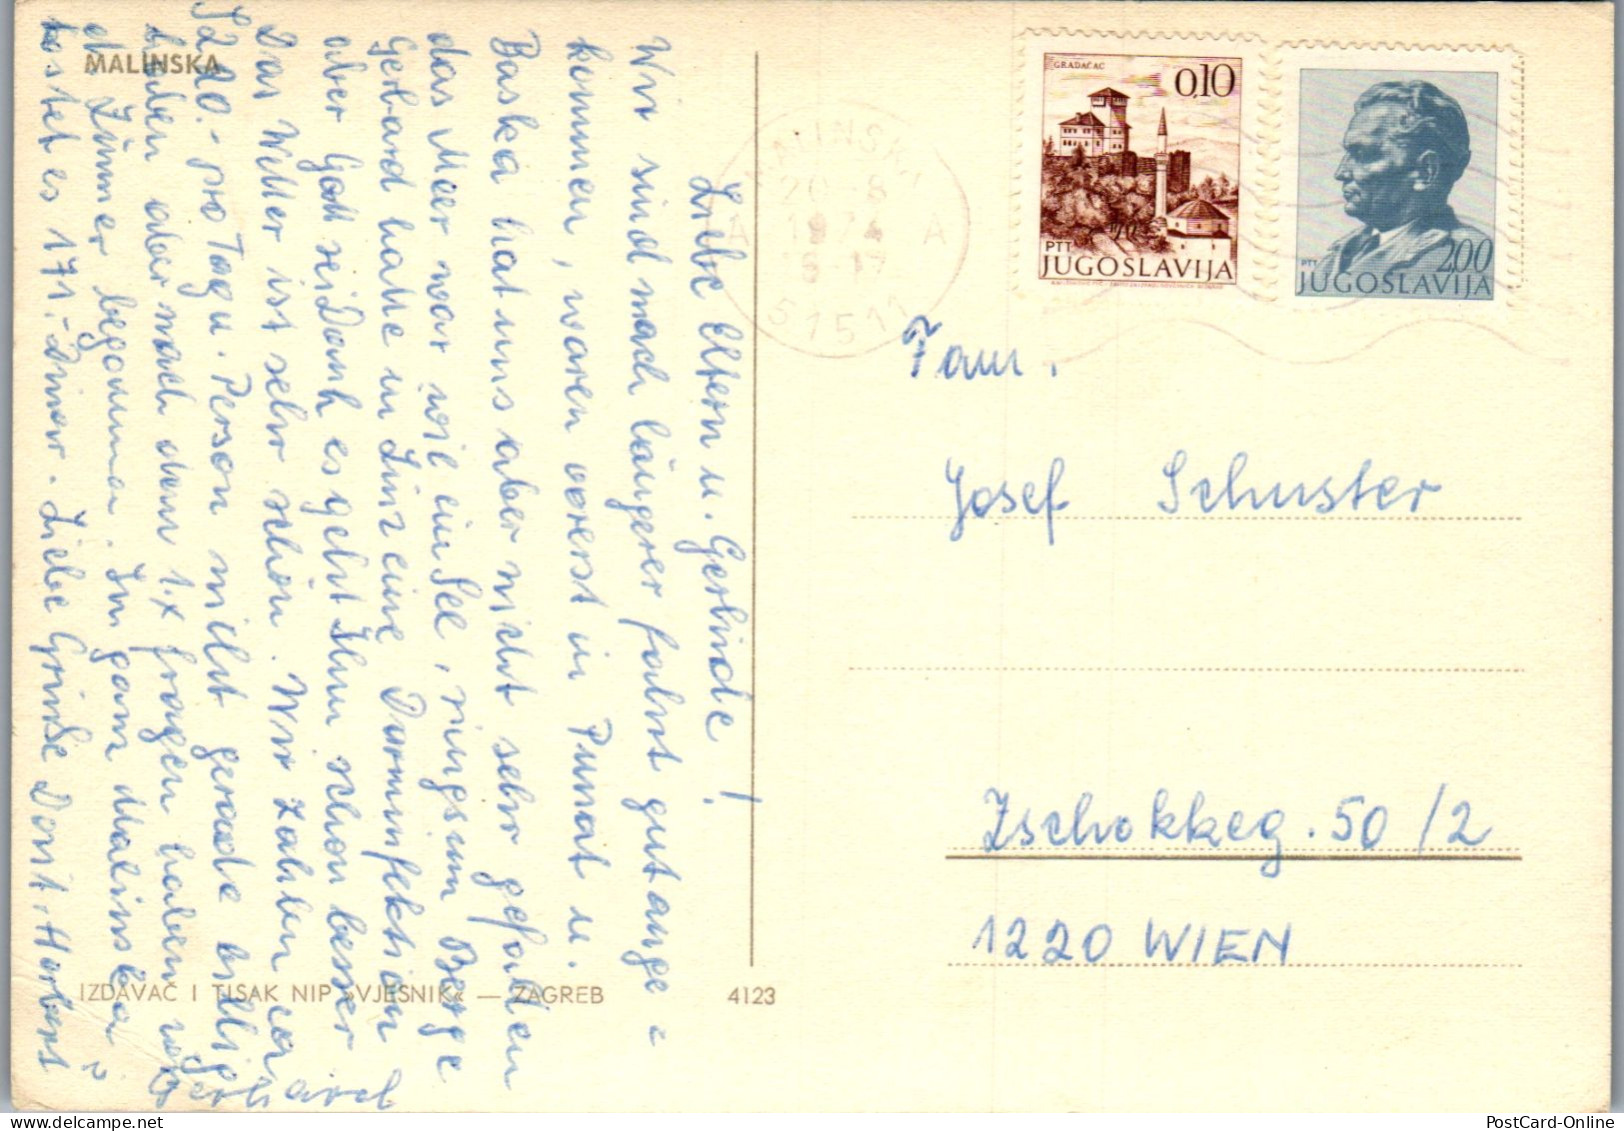 MALINSKA
Liebe Eltern u. Gerlinde!
Wir sind nach längerer Fahrt gut ange=
kommen, waren vorerst in Punat u.
Baska hat uns aber nicht sehr gefallen
das Meer war wie ein See, ringsum Berge
Gerhard hatte in Linz eine Darminfektion
aber Gott sei Dank es geht Ihm schon besser
Das Wetter ist sehr schön. Wir zahlen ca
S 220.- pro Tag u. Person nicht gerade billig
haben aber nach dem 1.x fragen haben wir
d. Zimmer begonnen. Im ganz Malinska
kostet es 171.- Dinar. Liebe Grüße Dorit, Herbert
Gerhard
IZDAVAČ I TISAK NIP »VJESNIK« — ZAGREB
4123
MALINSKA
20-8
1974
16-17
A A
51511
GRADAČAC
0,10
PTT
JUGOSLAVIJA
2,00
PTT
JUGOSLAVIJA
Fam.
Josef Schuster
Zschokkeg. 50/2
1220 WIEN